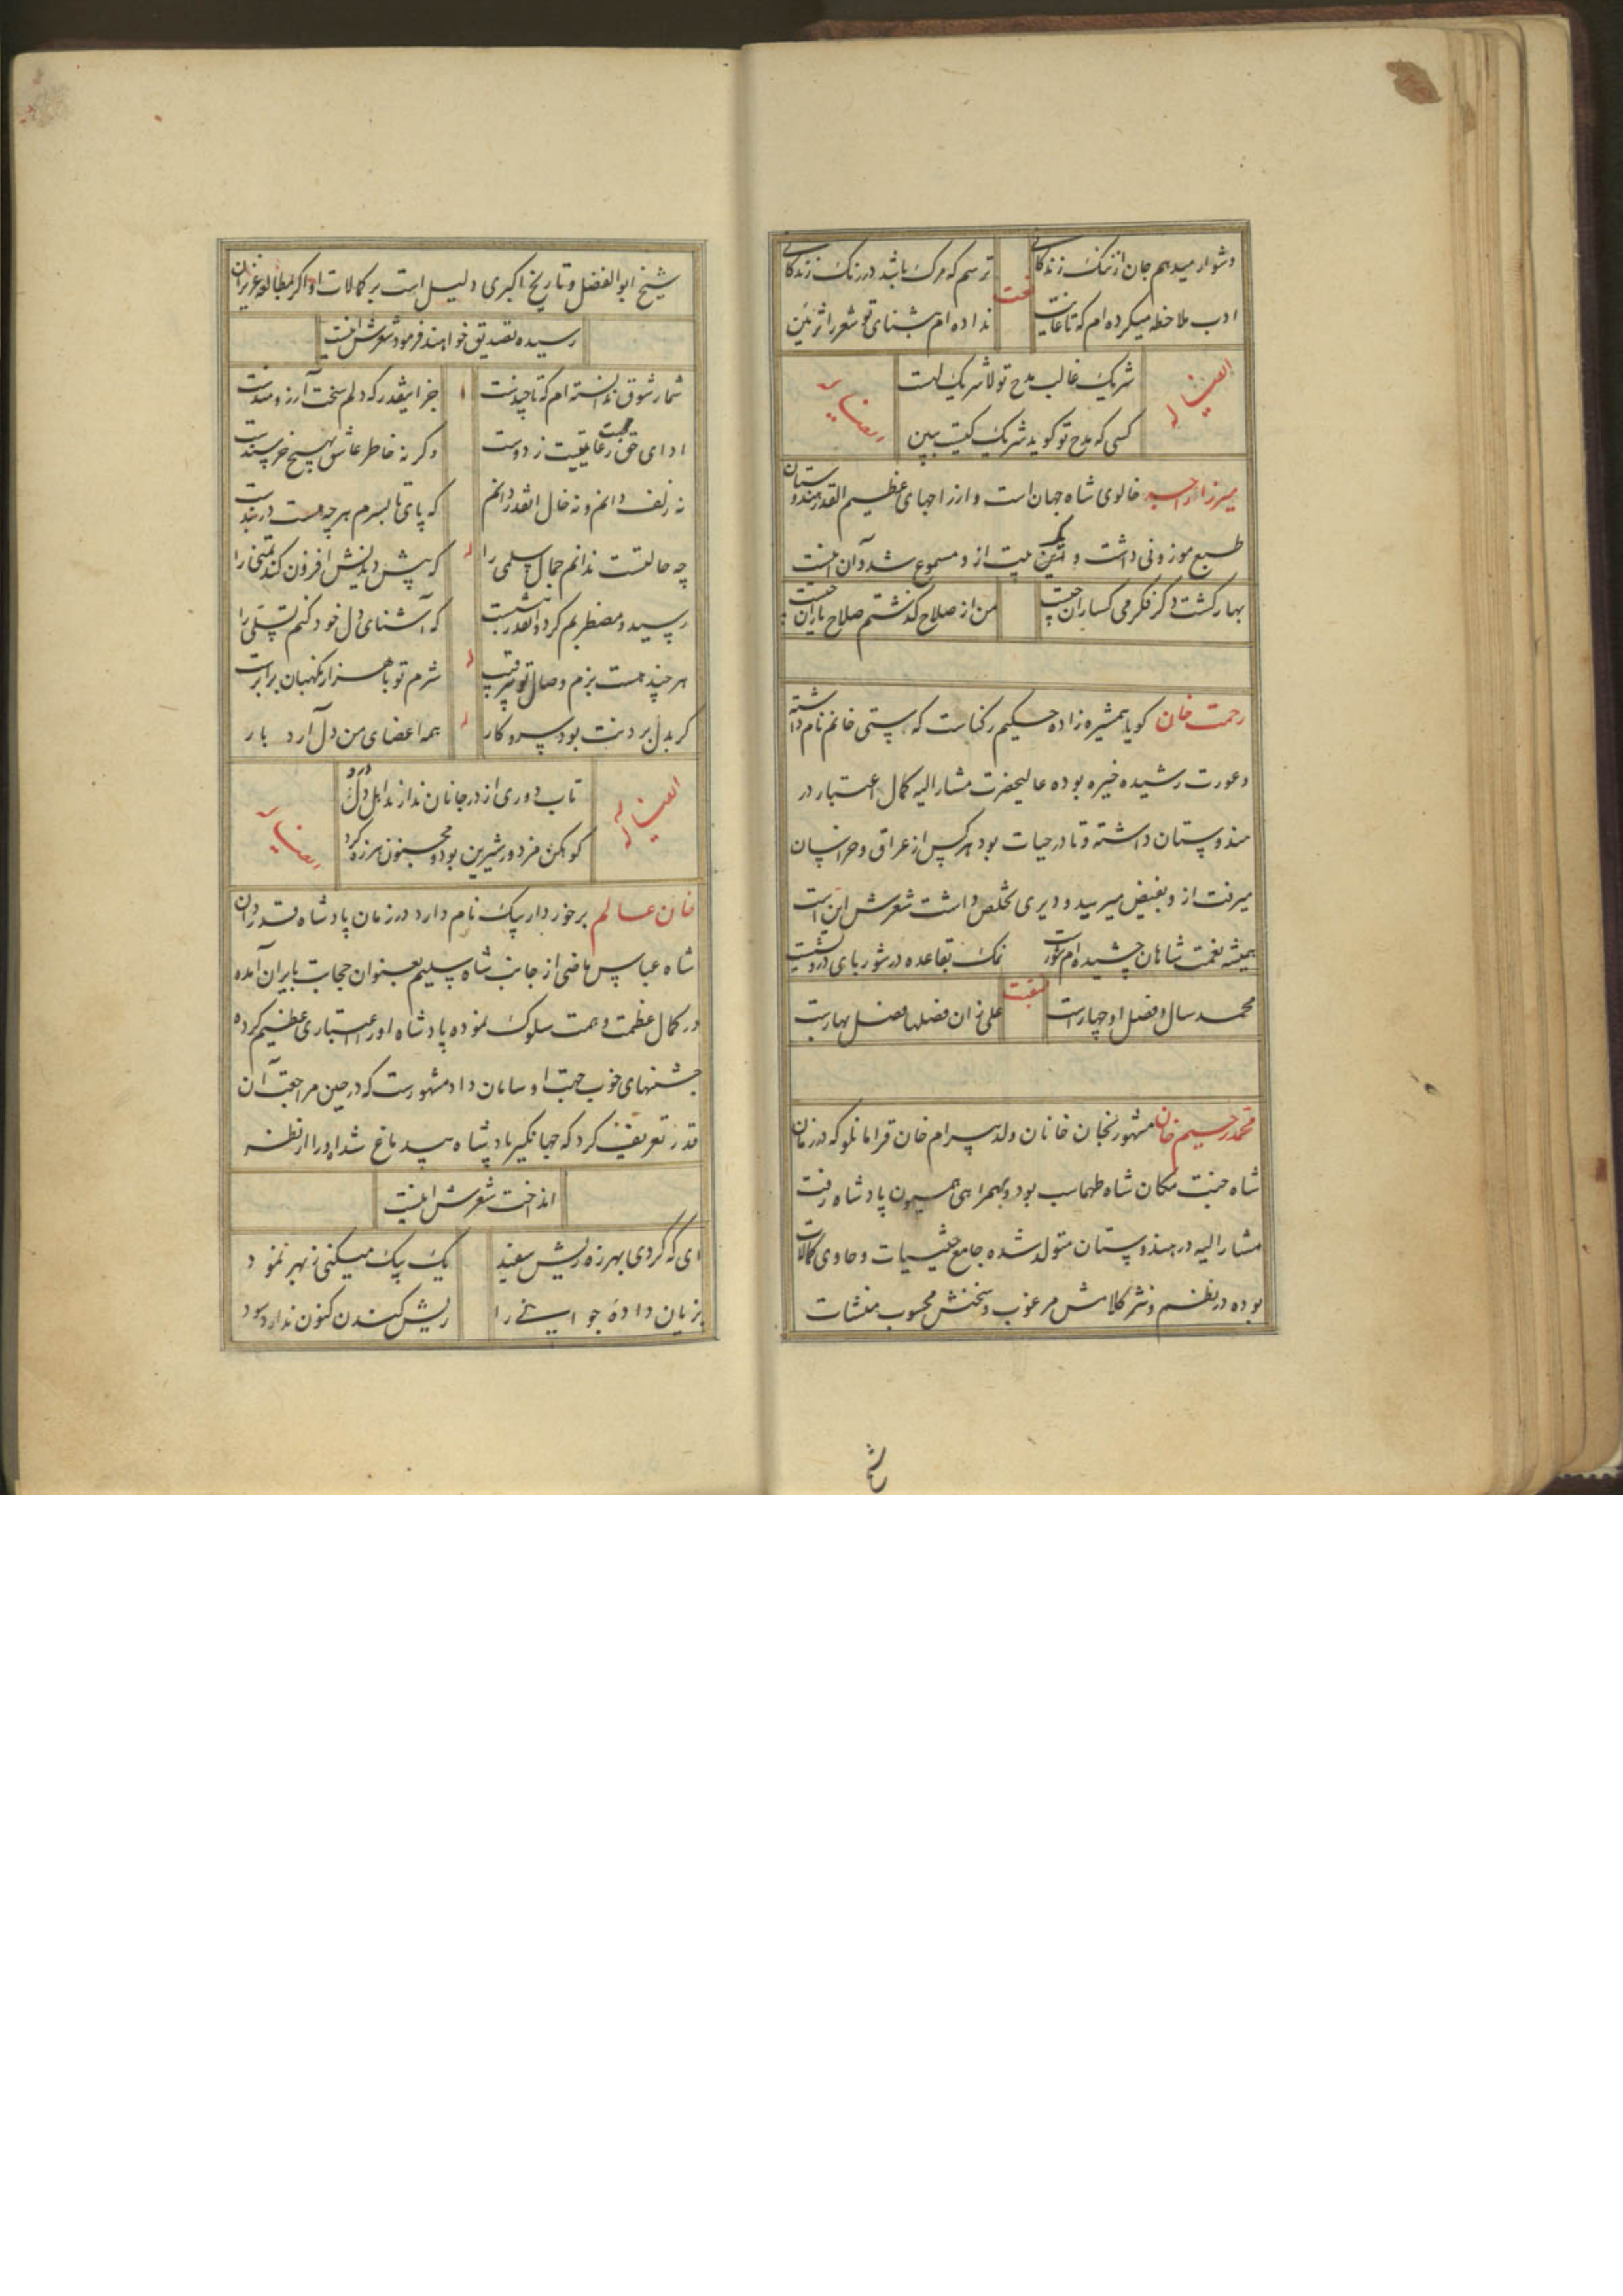 دشوار میدهم جان از ننگ زندگانی
ترسم که مرگ باشد در رنگ زندگانی
ادب ملاحظه میکرده ام که تا غایت
نداده ام بثنای تو شعر را تزئین
ایضا له
شریک غالب مدح تو لا شریک لهست
کسی که مدح تو گوید شریک کیست ببین
ایضا له
میرزا خالوی شاه جهان است و از راجهای عظیم القدر هندوستان
طبع موزونی داشت و این یک بیت از و مسموع شد و آن اینست
بهار گشت دگر فکر می گساران چیست
من از صلاح گذشتم صلاح یاران چیست
رحمت خان گویا همشیره زاده حکیم رکناست که ستی خانم نام داشته
و عورت رشیده خیره بوده عالیحضرت مشارالیه کمال اعتبار در
هندوستان داشته و تا در حیات بود هر کس از عراق و خراسان
میرفت از و بفیض میرسید و دیری تخلص داشت شعرش این است
همیشه نعمت شاهان چشیده ام شورست
نمک بقاعده در شوربای درویشست
منقبت
محمد سال و فصل او چهارست
علی زان فصلها فصل بهارست
محمد رحیم خان مشهور بخان خانان ولد بیرام خان قرامانلو که در زمان
شاه جنت مکان شاه طهماسب بود و بهمراهی همیون پادشاه رفت
مشار الیه در هندوستان متولد شده جامع حیثیات و حاوی کمالات
بوده در نظم و نثر کلامش مرغوب و سخنش محسوب منشآت
شیخ ابوالفضل و تاریخ اکبری دلیل است بر کمالات او اگر بمطالعه عزیزان
رسیده تصدیق خواهند فرمود شعرش اینست
شمار شوق ندانسته ام که تا چندست
جز اینقدر که دلم سخت آرزومندست
ادای حق محبت عنایتیست ز دوست
وگرنه خاطر عاشق بهیچ خرسندست
نه زلف دانم و نه خال اینقدر دانم
که پای تا بسرم هر چه هست در بندست
چه حالتست ندانم جمال سلمی را
که بیش دیدنش افزون کند تمنی را
رسید و مضطربم کرد و آنقدر ننشست
که آشنای دل خود کنم تسلی را
هر چند هست بزم وصال تو بی رقیب
شرم تو با هزار نگهبان برابرست
گر بدل بردنت بود سر و کار
همه اعضای من دل آرد بار
ایضا له
تاب دوری از در جانان ندارند اهل درد
کوهکن مزدور شیرین بود و مجنون هرزه گرد
ایضا له
خان عالم برخوردار بیک نام دارد در زمان پادشاه قدردان
شاه عباس ماضی از جانب شاه سلیم بعنوان حجابت بایران آمده
در کمال عظمت و همت سلوک نموده پادشاه او را اعتباری عظیم کرده
جشنهای خوب جهت او سامان داد مشهورست که در حین مراجعت آن
قدر تعریف کرد که جهانگیر پادشاه بیدماغ شد او را از نظر
انداخت شعرش اینست
ای که کردی بهرزه ریش سفید
یک بیک میکنی ز بهر نمود
بزیان دادهٔ جوانی را
ریش کندن کنون ندارد سود